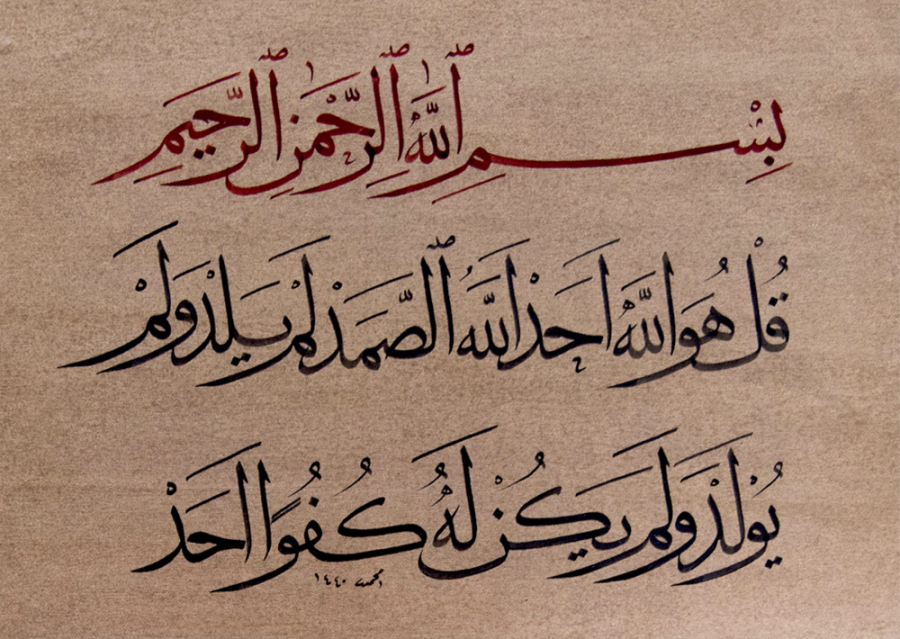 بِسْمِ ٱللَّهِ ٱلرَّحْمٰنِ ٱلرَّحِيمِ
قُلْ هُوَ اللَّهُ اَحَدْ اَللَّهُ ٱلصَّمَدْ لَمْ يَلِدْ وَلَمْ
يُولَدْ وَلَمْ يَكُنْ لَهُ كُفُوًا اَحَدْ
١٤٤٠